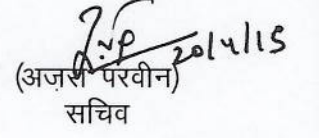 20/4/15
(अज़रा परवीन)
सचिव